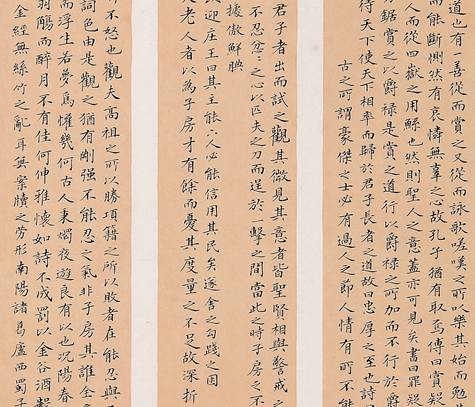 道也有一善從而賞之又從而詠歌嗟嘆之所以樂其始而勉
而能斷惻然有哀憐無辜之心故孔子猶有取焉傳曰賞疑
人而從四嶽之用鯀也然則聖人之意蓋亦可見矣書曰罪疑
鋸賞之以爵祿是賞之道行以爵祿之所加而不行於爵
待天下使天下相率而歸於君子長者之道故曰忠厚之至也詩
古之所謂豪傑之士必有過人之節人情有所不能
君子者出而試之觀其微見其意者皆聖賢相與警戒之
不忍忿忿之心以匹夫之力而逞於一擊之間當此之時子房之不
傲鮮腆
以迎莊王曰其主能下人必能信用其民矣遂舍之勾踐之困
夫老人者以為子房才有餘而憂其度量之不足故深折
不怒也觀夫高祖之所以勝項籍之所以敗者在能忍與
詞色由是觀之猶有剛強不能忍之氣非子房其誰全
而浮生若夢為懽幾何古人秉燭夜遊良有以也況陽春
羽觴而醉月不有佳何伸雅懷如詩不成罰以金谷酒數
金經無絲竹之亂耳無案牘之勞形南陽諸葛廬西蜀子